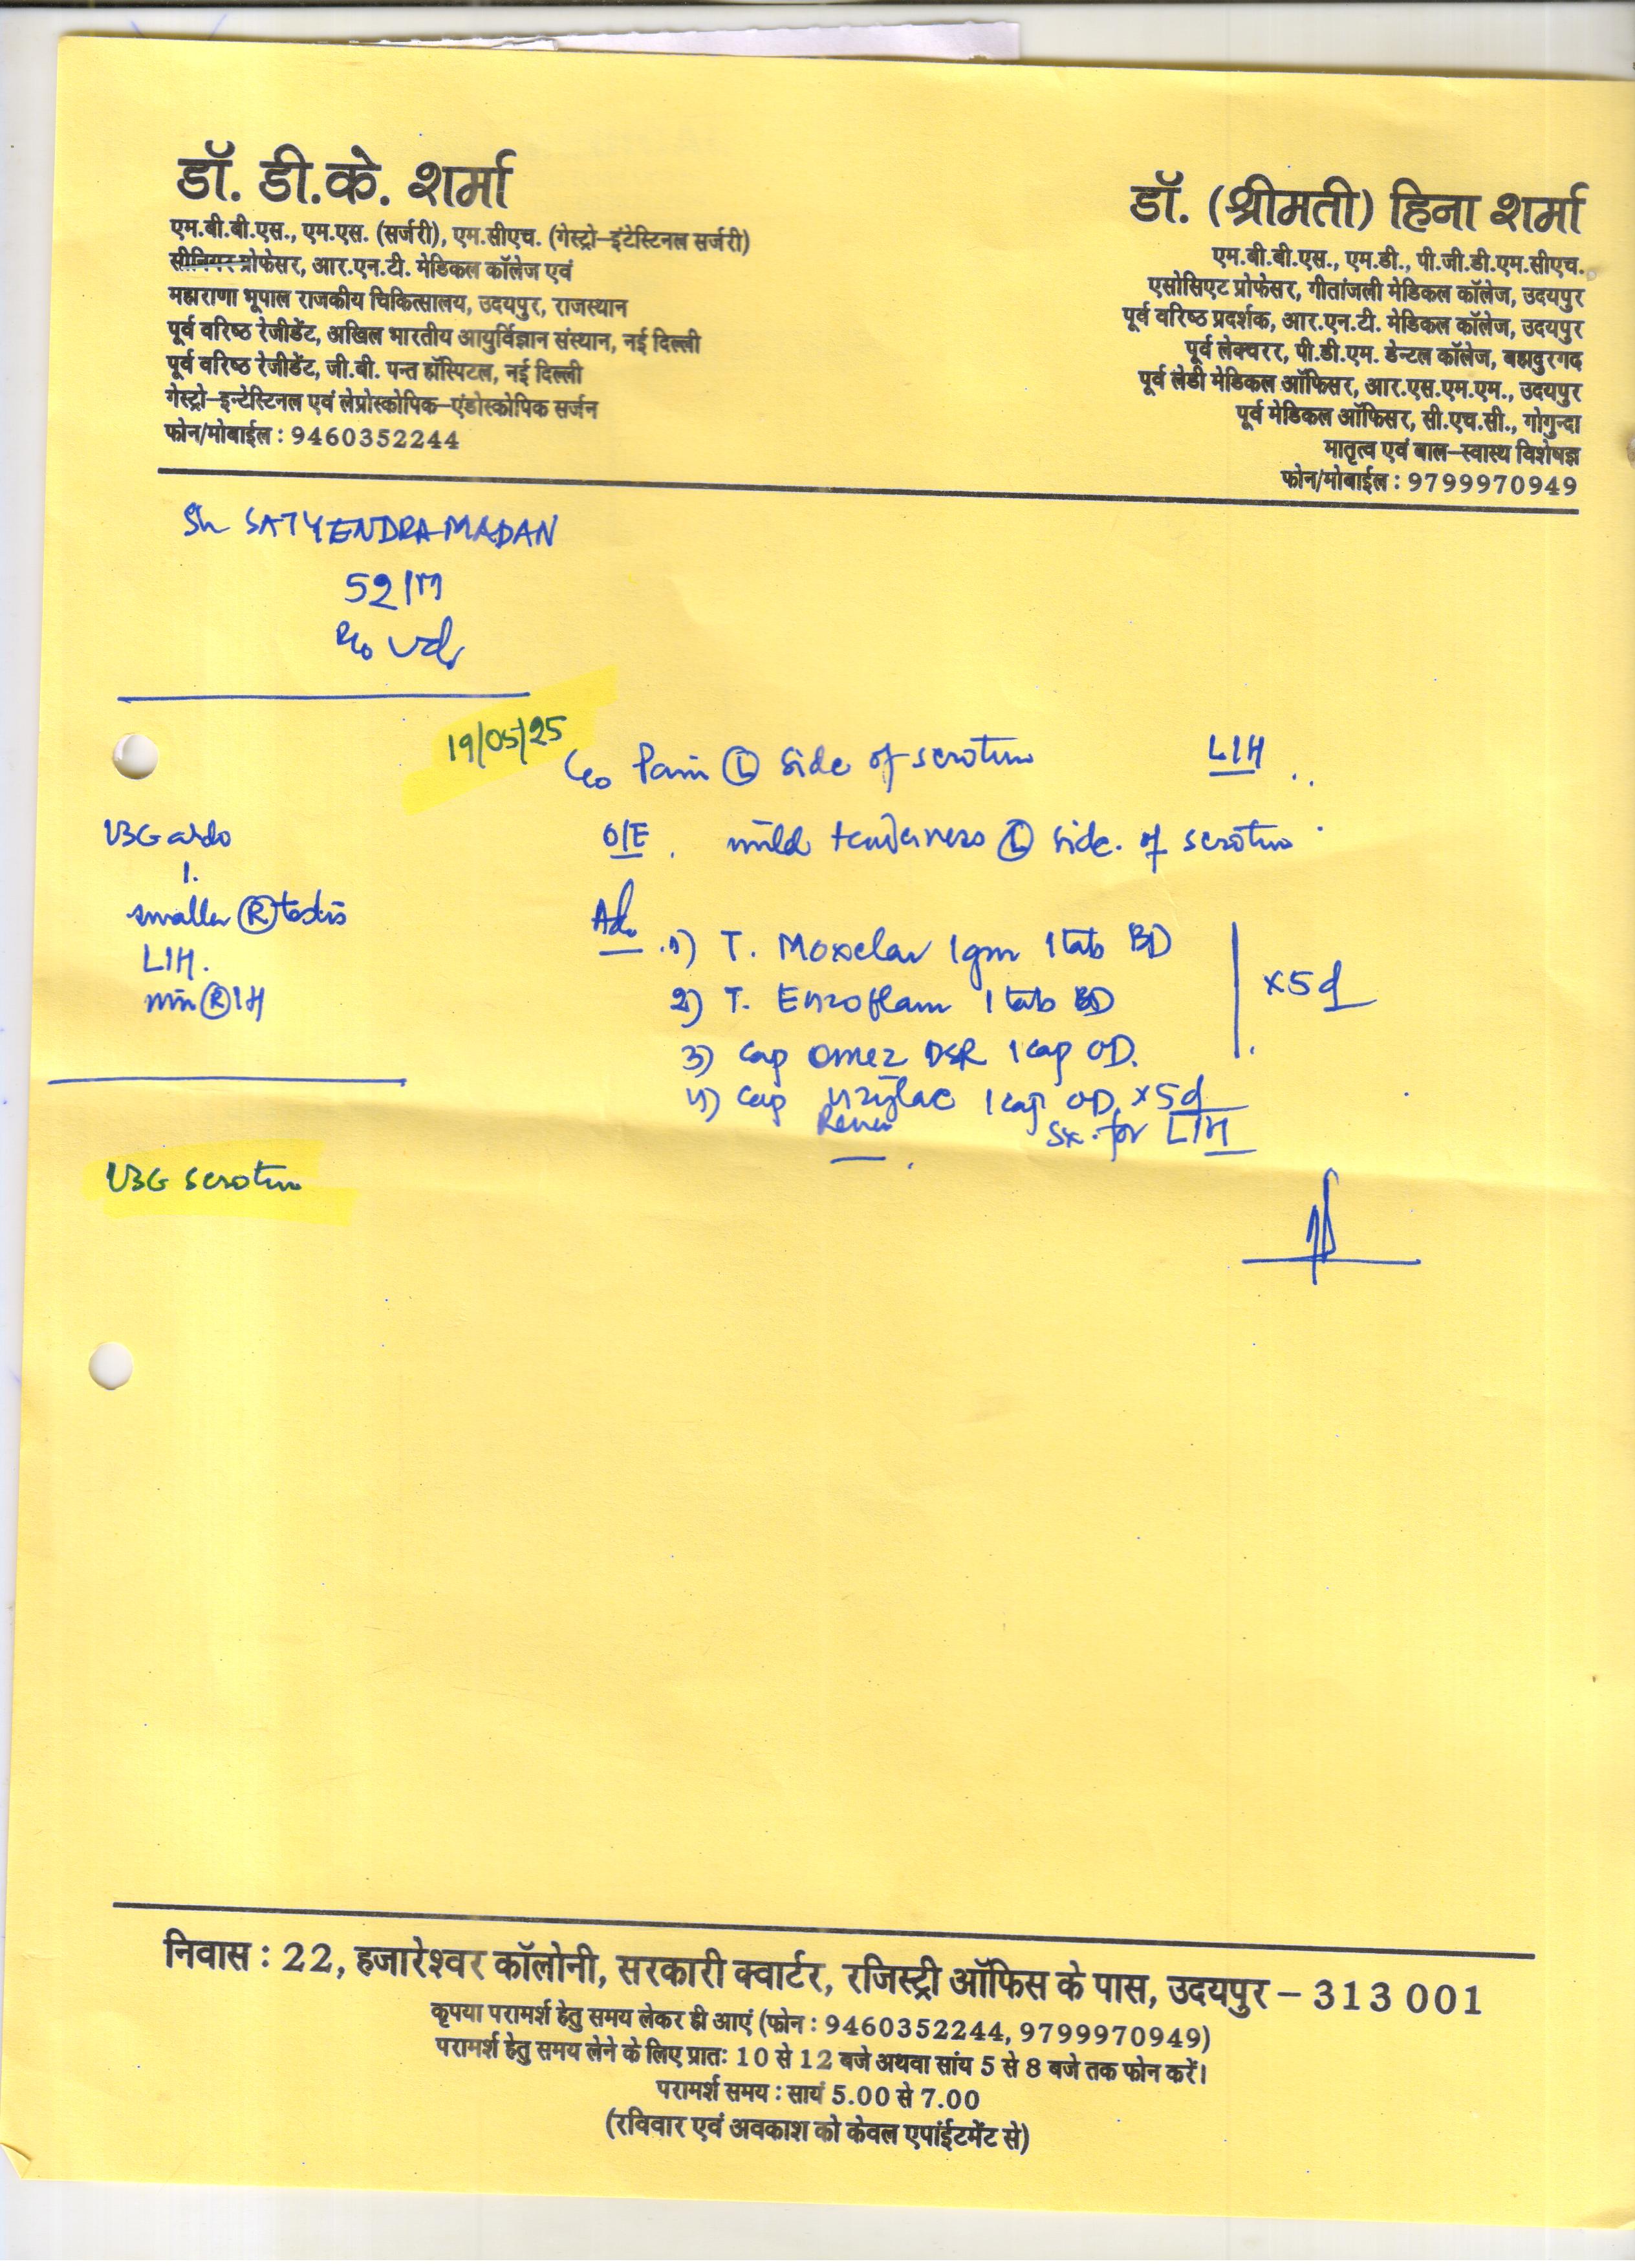 डॉ. डी.के. शर्मा
एम.बी.बी.एस., एम.एस. (सर्जरी), एम.सीएच. (गेस्ट्रो–इंटेस्टिनल सर्जरी)
सीनियर प्रोफेसर, आर.एन.टी. मेडिकल कॉलेज एवं
महाराणा भूपाल राजकीय चिकित्सालय, उदयपुर, राजस्थान
पूर्व वरिष्ठ रेजीडेंट, अखिल भारतीय आयुर्विज्ञान संस्थान, नई दिल्ली
पूर्व वरिष्ठ रेजीडेंट, जी.बी. पन्त हॉस्पिटल, नई दिल्ली
गेस्ट्रो–इन्टेस्टिनल एवं लेप्रोस्कोपिक–एंडोस्कोपिक सर्जन
फोन/मोबाईल : 9460352244
डॉ. (श्रीमती) हिना शर्मा
एम.बी.बी.एस., एम.डी., पी.जी.डी.एम.सीएच.
एसोसिएट प्रोफेसर, गीतांजली मेडिकल कॉलेज, उदयपुर
पूर्व वरिष्ठ प्रदर्शक, आर.एन.टी. मेडिकल कॉलेज, उदयपुर
पूर्व लेक्चरर, पी.डी.एम. डेन्टल कॉलेज, बहादुरगढ
पूर्व लेडी मेडिकल ऑफिसर, आर.एस.एम.एम., उदयपुर
पूर्व मेडिकल ऑफिसर, सी.एच.सी., गोगुन्दा
मातृत्व एवं बाल–स्वास्थ विशेषज्ञ
फोन/मोबाईल : 9799970949
Sh SATYENDRA MADAN
52/M
R/o Udr
19/05/25
C/o Pain (L) side of scrotum LIH
O/E mild tenderness (L) side of scrotum
USG abdo
smaller (R) testis
LIH.
min (R) IH
Adv
1) T. Moxclav 1gm 1 tab BD
2) T. Enzoflam 1 tab BD
x5d
3) Cap Omez DSR 1 cap OD.
4) Cap 1 cap OD x5d
Sx. for LIH
USG scrotum
निवास : 22, हजारेश्वर कॉलोनी, सरकारी क्वार्टर, रजिस्ट्री ऑफिस के पास, उदयपुर – 313 001
कृपया परामर्श हेतु समय लेकर ही आएं (फोन : 9460352244, 9799970949)
परामर्श हेतु समय लेने के लिए प्रातः 10 से 12 बजे अथवा सांय 5 से 8 बजे तक फोन करें।
परामर्श समय : सायं 5.00 से 7.00
(रविवार एवं अवकाश को केवल एपांईटमेंट से)